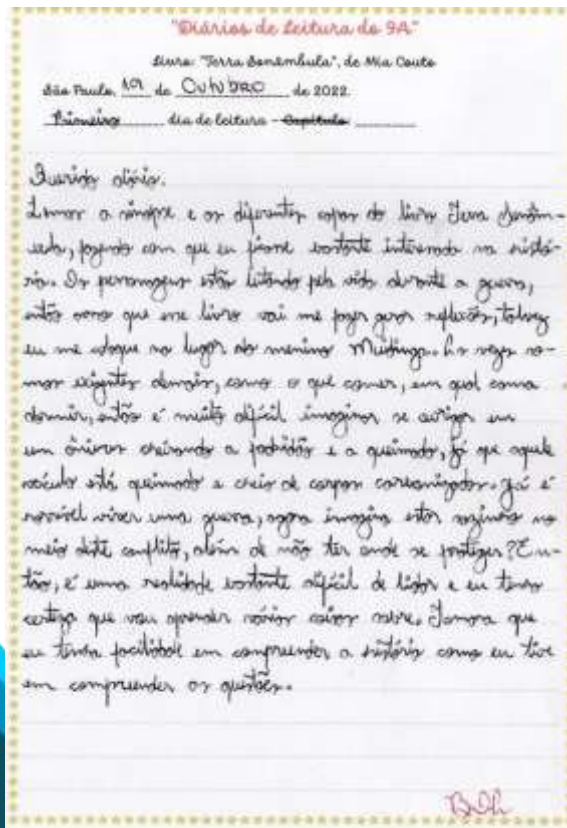 "Diários de Leitura do 9A"
Livro: "Terra Sonâmbula", de Mia Couto
São Paulo, 19 de Outubro de 2022.
Primeiro dia de leitura - Capítulo
Querido diário.
Lemos a sinopse e os diferentes capas do livro Terra Sonâm-
bula, fazendo com que eu ficasse bastante interessada na histó-
ria. Os personagens estão lutando pela vida durante a guerra,
então acho que esse livro vai me fazer gerar reflexões, talvez
eu me coloque no lugar do menino Muidinga. Às vezes so-
mos exigentes demais, como o que comer, em qual cama
dormir, então é muito difícil imaginar se abrigar em
um ônibus cheirando a podridão e a queimado, já que aquele
veículo está queimado e cheio de corpos carbonizados. Já é
horrível viver uma guerra, agora imagina estar sozinho no
meio deste conflito, além de não ter onde se proteger? En-
tão, é uma realidade bastante difícil de lidar e eu tenho
certeza que vou aprender várias coisas sobre. Tomara que
eu tenha facilidade em compreender a história como eu tive
em compreender as questões.